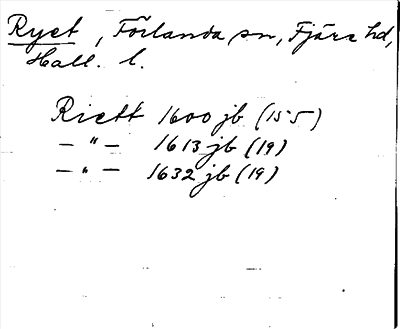 Ryet, Förlanda sn, Fjäre hd,
Hall. l.
Riett 1600 jb (155)
— " — 1613 jb (19)
— " — 1632 jb (19)